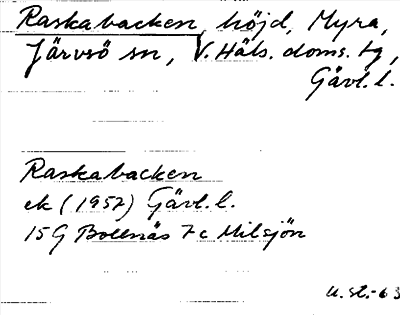 Raskabacken, höjd, Myra,
Järvsö sn, V. Häls. doms. tg,
Gävl. l.
Raskabacken
ek (1957) Gävl. l.
15G Bollnäs 7c Milsjön
U. st. -63